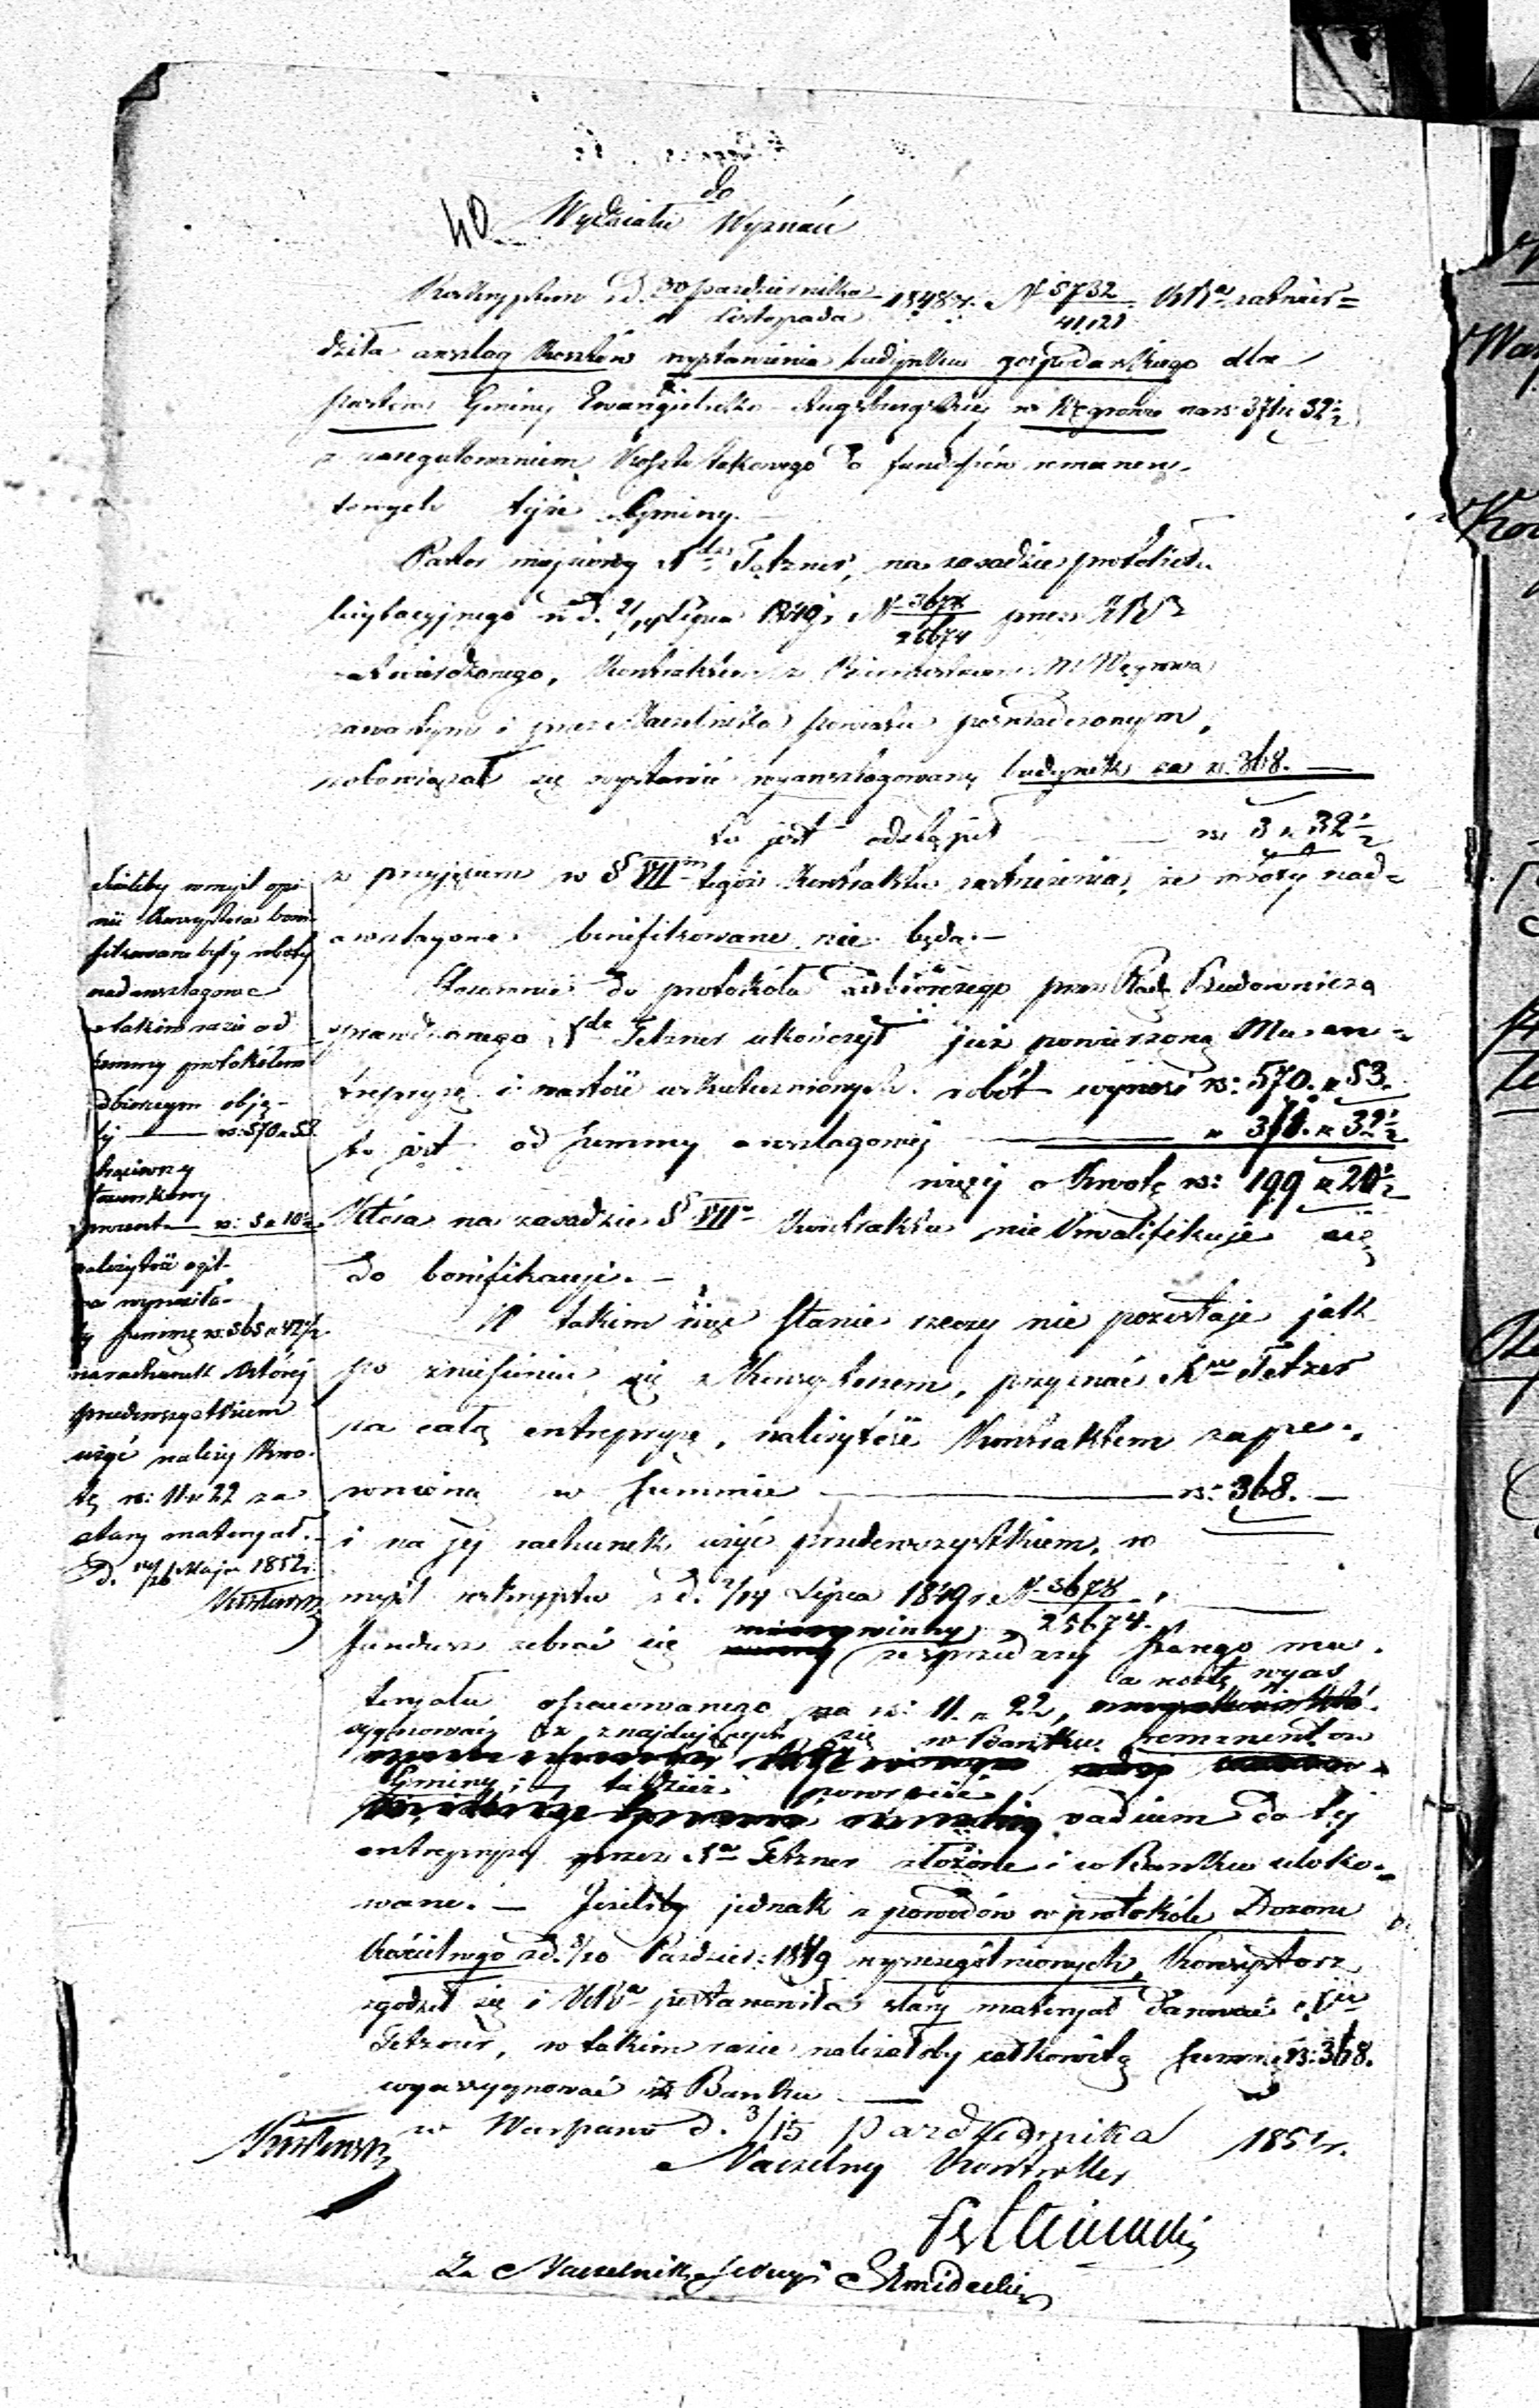 do
40 Wydziału Wyznań
Reskryptem z d. 30 października / 11 Listopada 1848 r. N 5732 / 41,121 KR zatwier=
dziła anszlag kosztów wystawienia budynku gospodarskiego dla
pastora Gminy Ewangielicko-Augsburgskiej w Węgrowie na rs: 371 k 32½
z zaregulowaniem kosztu takowego do funduszów remanen-
towych tejże Gminy.
Pastor miejscowy Tetzner, na zasadzie protokułu
licytacyjnego z d. 2/14 Lipca 1849 r. N 3678 / 25674 przez
zatwierdzonego, kontraktem z Burmistrzem M. Węgrowa
zawartym i przez Naczelnika powiatu poświadczonym,
zobowiązał się wystawić wyanszlagowany budynek za rs. 368. —
to jest odstąpił — rs 3 k 32½
z przyjęciem w § VII tegoż kontraktu zastrzeżenia, że roboty nad=
anszlagowe benifikowane nie będą. —
Stosownie do protokółu odbiorczego przez Radę Budowniczą
sprawdzonego, Tetzner ukończył już powierzoną Mu en=
trepryzę i wartość uskutecznionych robót wynosi rs: 570. k 53.
to jest od summy anszlagowej — " 371. k 32½
więcej o kwotę rs: 199 k 20½
Która na zasadzie § VII kontraktu nie kwalifikuje się
do bonifikacyi. —
W takim więc stanie rzeczy nie pozostaje jak
po zniesieniu się z Konsystorzem, przyznać Tetzner
za całą entrepryzę, należytość kontraktem zape=
wnioną w summie — rs: 368. —
i na jej rachunek użyć przedewszystkiem, w
myśl reskryptu z d. 2/14 Lipca 1849 r. N 3678 / 25674.
fundusz zebrać się winny ze sprzedaży starego ma=
teryału oszacowanego na rs: 11. k 22, a resztę wyas
sygnować ze znajdujących się w Banku remanentów
Gminy; tudzież powrócić vadium do tej
entrepryzy przez Tetzner złożone i w Banku uloko=
wane. — Jeżeliby jednak z powodów w protokóle Dozoru
Kościelnego z d. 8/20 Paździer: 1849 wyszczególnionych, Konsystorz
zgodził się i postanowiła stary materyał darować
Tetzner, w takim razie należałoby całkowitą summę rs: 368.
wyassygnować z Banku —
w Warszawie d. 3/15 Października 1851 r.
Naczelny Kontroller
Za Naczelnika Sekcyi Szmidecki
nii Konsystorza boni-
fikowane były roboty
nadanszlagowe
w takim razie od
summy protokółem
odbiorczym obję-
tej — rs: 570 k 53
procent — rs: 5 k 10½
należytość ogól-
na wynosiła-
by summę rs: 565 k 42½
na rachunek której
przedewszystkiem
użyć należy kwo-
tę rs: 11 k 22 za
stary materyał. —
d. 14/26 Maja 1852 r.